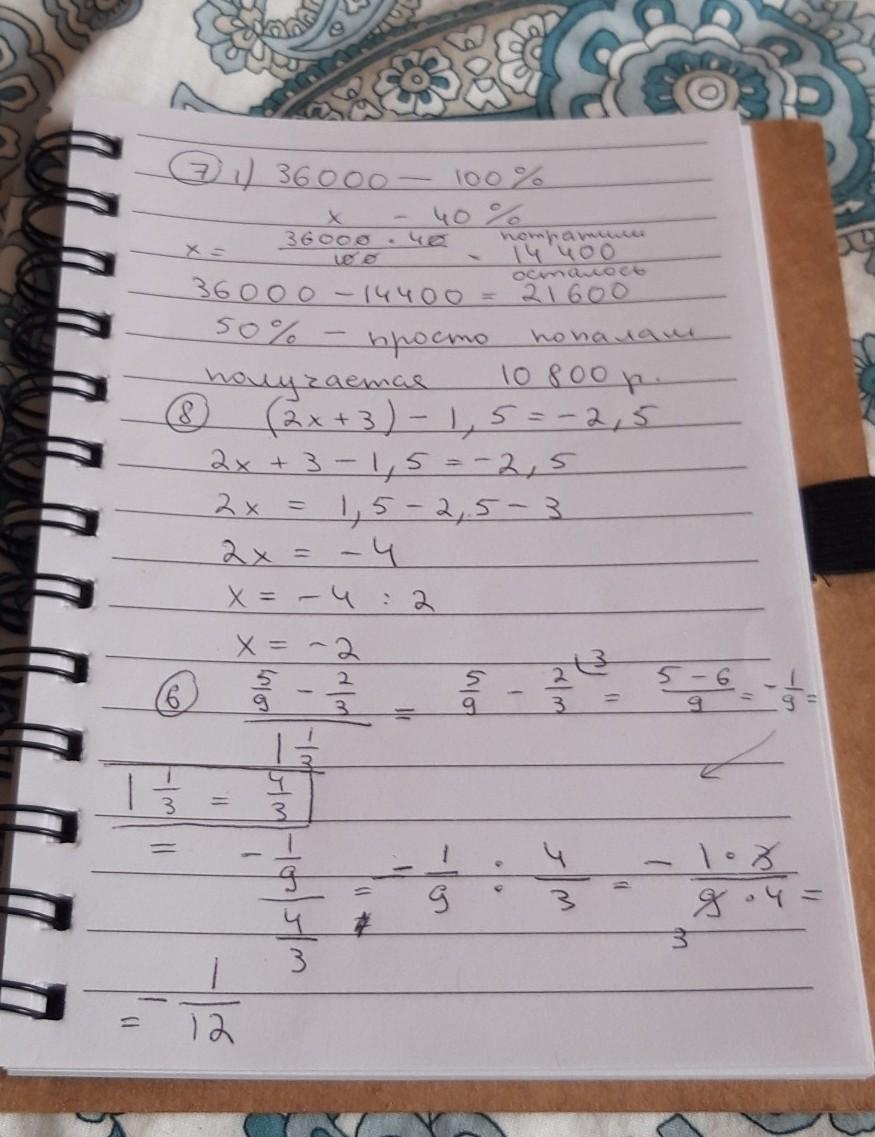 7 1) 36000 — 100%
x - 40%
x = 36000 · 40 / 100 - потратили 14400
36000 - 14400 = осталось 21600
50% - просто пополам
получается 10800 р.
8 (2x+3) - 1,5 = -2,5
2x + 3 - 1,5 = -2,5
2x = 1,5 - 2,5 - 3
2x = -4
x = -4 : 2
x = -2
6 5/9 - 2/3 / 1 1/3 = 5/9 - 2/3 (3 = 5-6/9 = -1/9 =
1 1/3 = 4/3
= -1/9 / 4/3 = -1/9 : 4/3 = - 1·3/9·4 = 3
= - 1/12